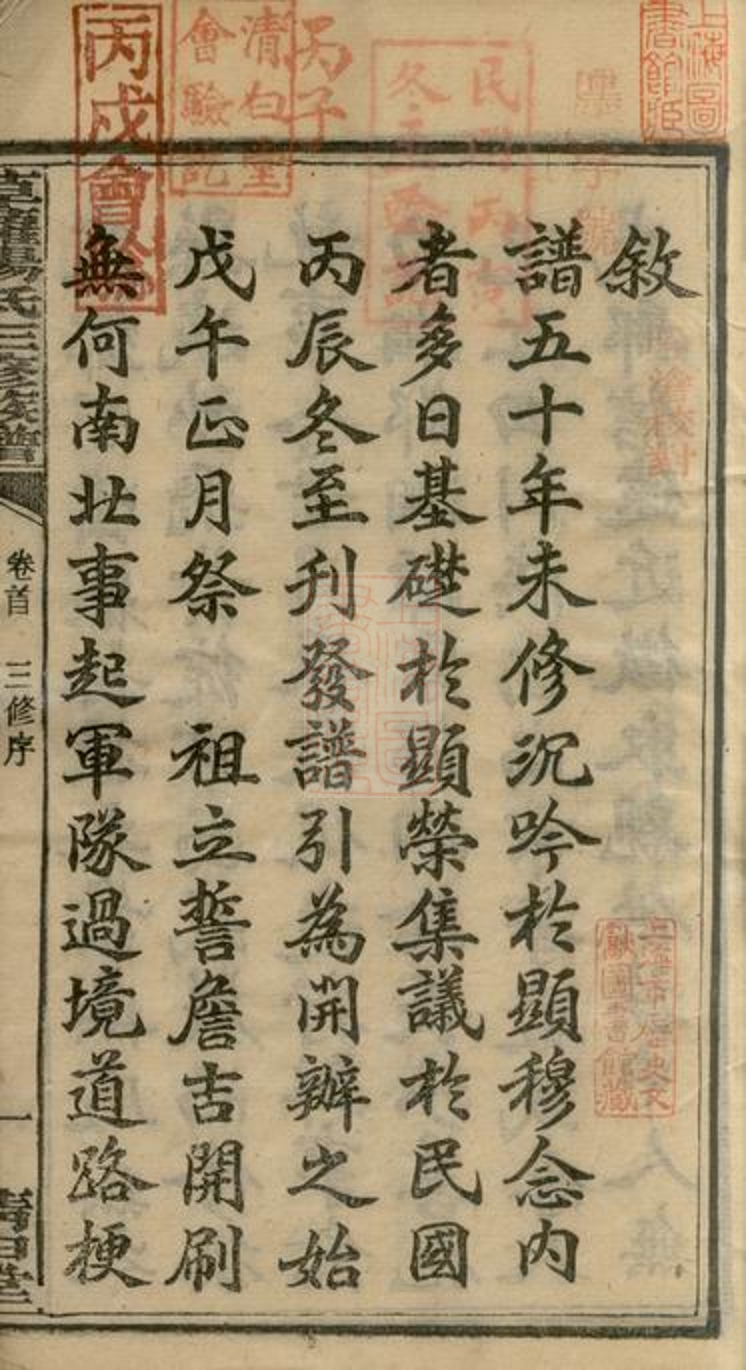 敘
譜五十年未修沉吟於顯穆念內
者多日基礎於顯榮集議於民國
丙辰冬至刊發譜引為開辦之始
戊午正月祭 祖立誓詹吉開刷
無何南北事起軍隊過境道路梗
楊氏三修族譜
卷首 三修序
一
清白堂
丙戌會
清白堂
會驗訖
丙子
民國丙
冬至
上海圖
書館藏
上海市歷史文
獻圖書館藏